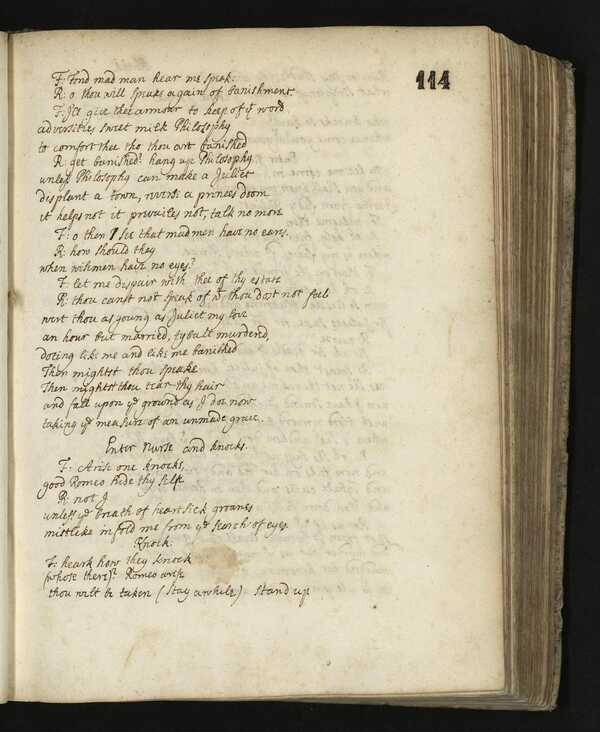 114
F: Fond mad man hear me speak.
R: o thou will speake again of banishment
F: Ile give thee armour to keep of yt word
adversities sweet milk Philosophy
to comfort thee tho thou art banished
R: yet banished? hang up Philosophy
unless Philosophy can make a Juliet
displant a town, revers a princes doom
it helps not it prevailes not, talk no more
F: o then I see that mad men have no ears.
R: how should they
when wisemen have no eyes?
F: let me dispair with thee of thy estate
R: thou canst not speak of wt thou dost not feel
wert thou as young as Juliet my love
an hour but married, tybult murderd,
doting like me and like me banished
Then mightst thou speake
Then mightst thou tear thy hair
and fall upon ye ground as I doe now
taking ye measure of an unmade grave.
Enter Nurse and knocks.
F: Arise one knocks,
good Romeo hide thy self
R: not I
unless ye breath of heartsick groanes
mistlike infold me from ye search of eyes
Knock.
F: heark how they knock
(whose there)? Romeo arise
thou wilt be taken (Stay awhile) Stand up